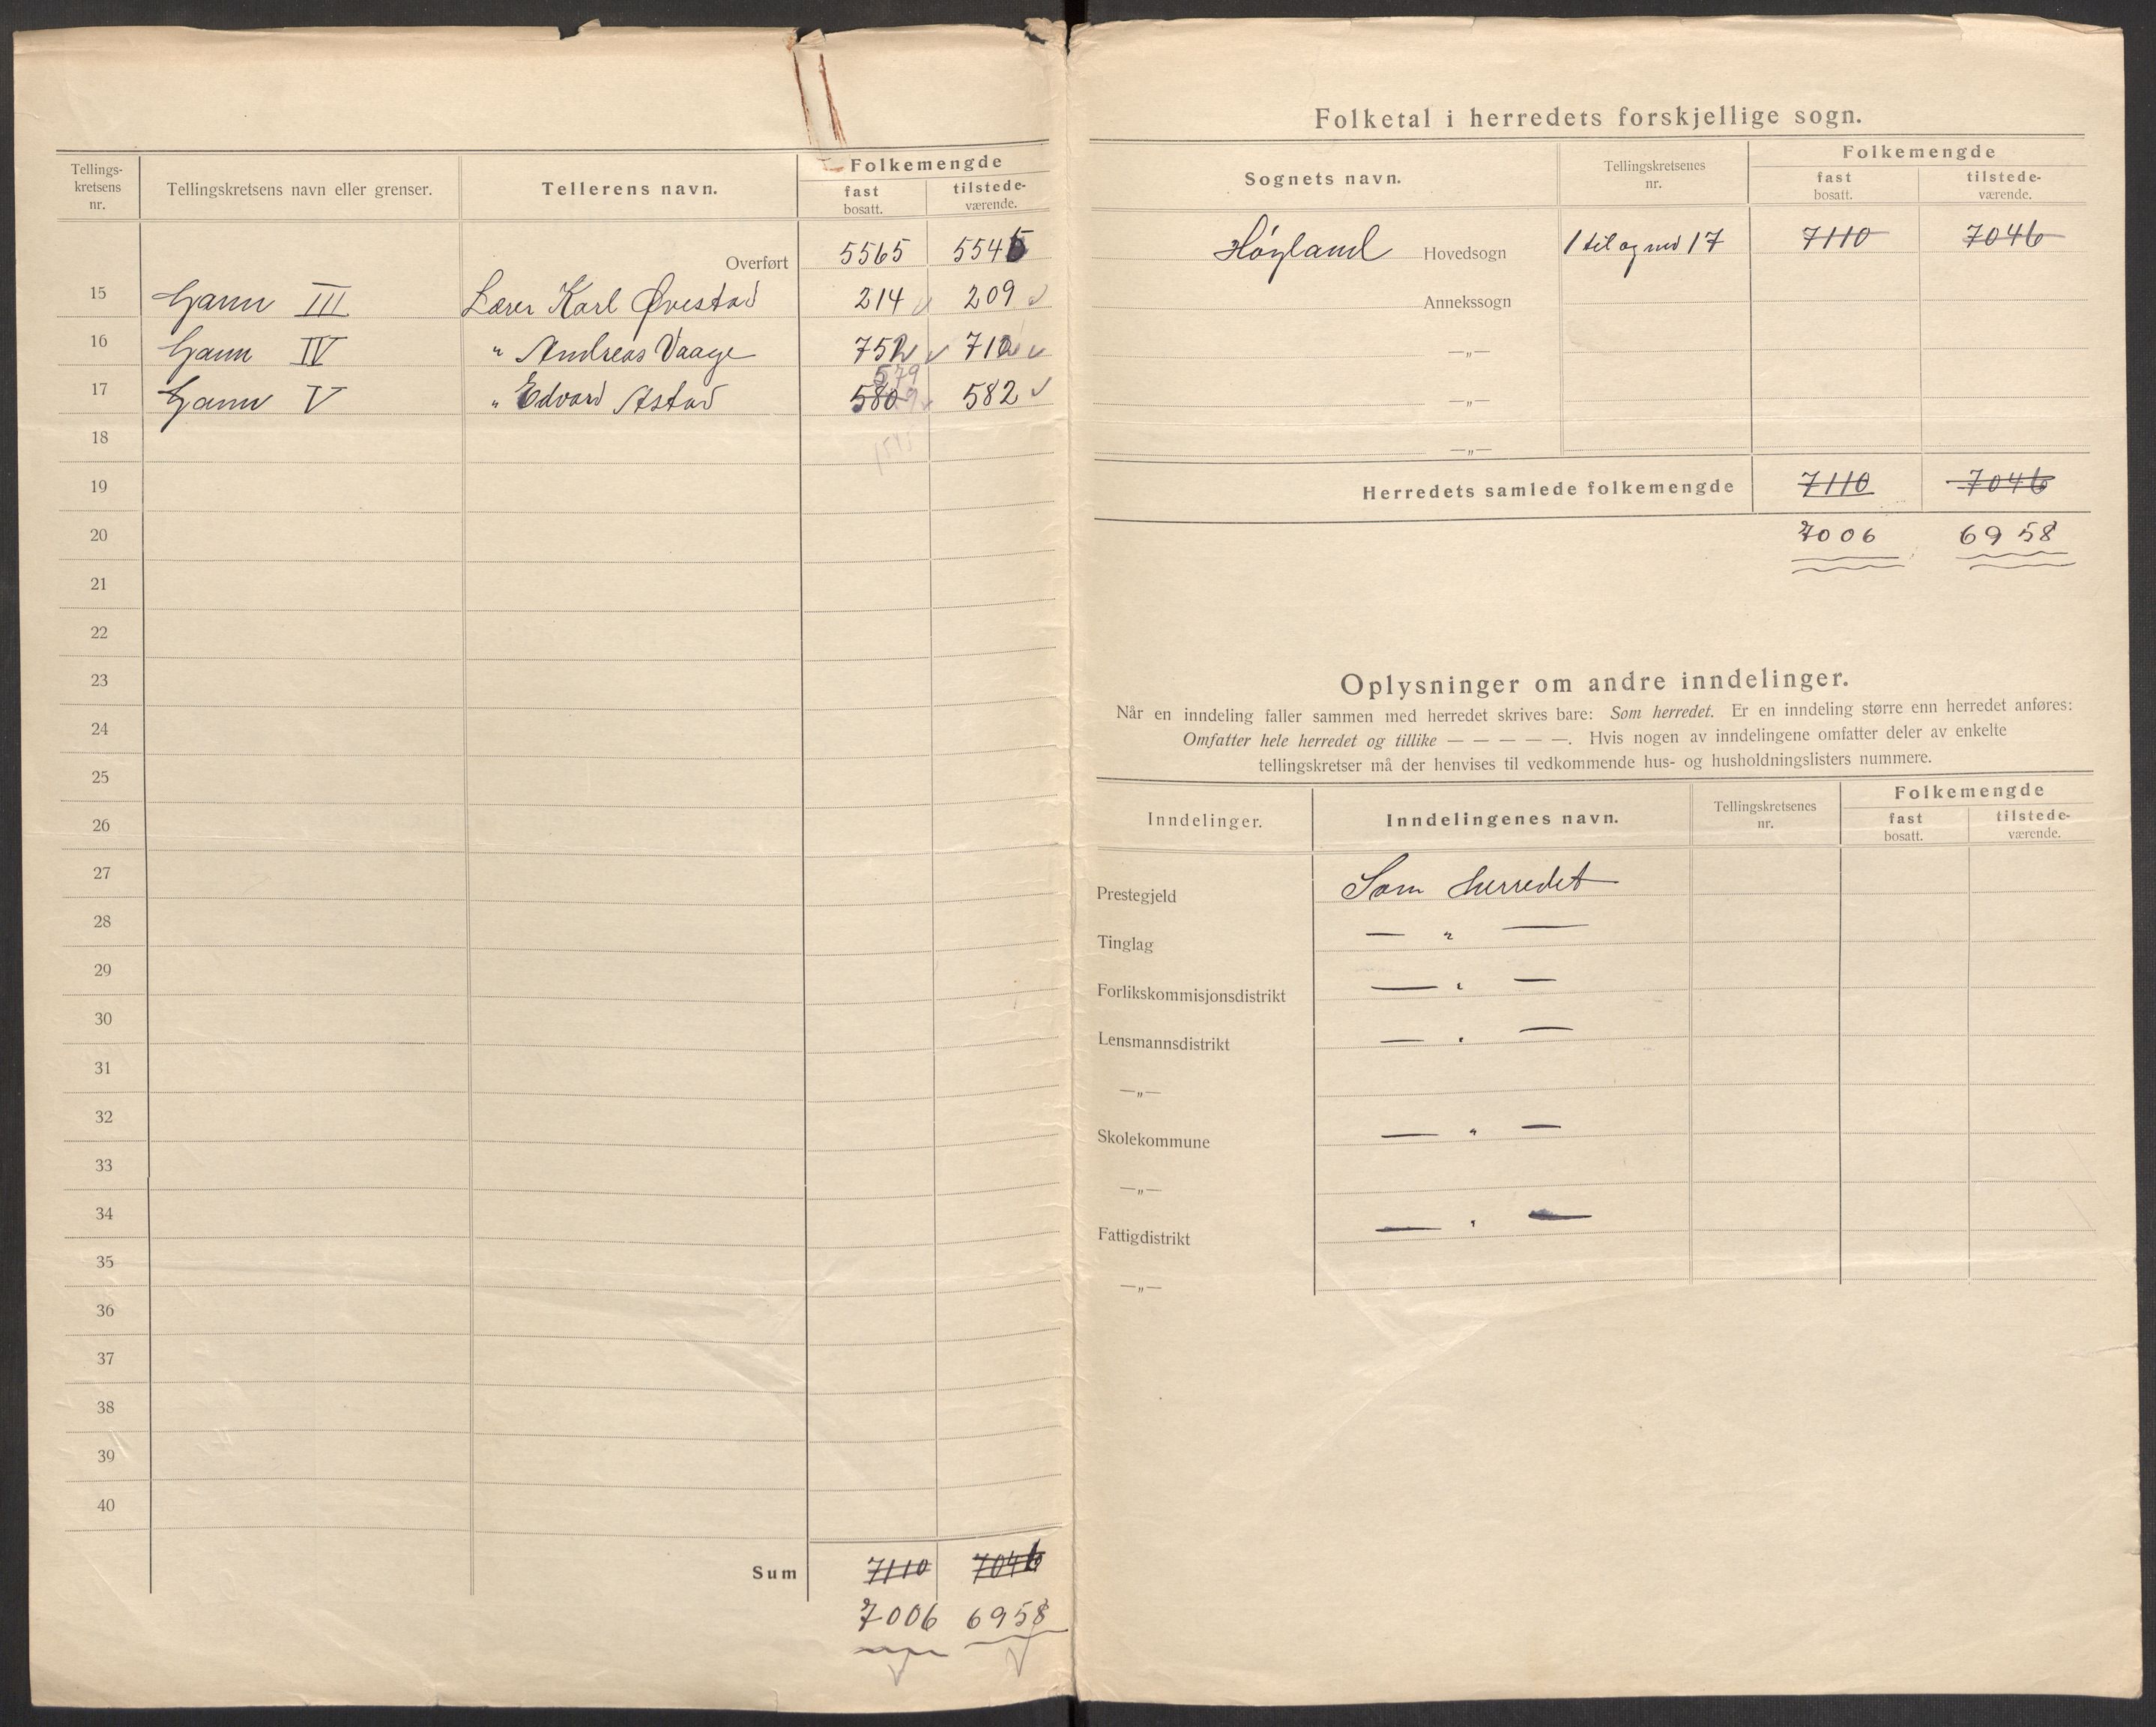 Tellings-
kretsens
nr.
Tellingskretsens navn eller grenser.
Tellerens navn.
Folkemengde
fast
bosatt.
tilstede-
værende.
Overført 5565 5546
15 Gann III Lærer Karl Øvestad 214 209
16 Gann IV " Andreas Vaage 752 712
579
17 Gann V " Edvard Astad 580 9 582
18
19
20
21
22
23
24
25
26
27
28
29
30
31
32
33
34
35
36
37
38
39
40
Sum 7110 7046
7006 6958
Folketal i herredets forskjellige sogn.
Sognets navn.
Tellingskretsenes
nr.
Folkemengde
fast
bosatt.
tilstede-
værende.
Høyland Hovedsogn 1 til og med 17 7110 7046
Annekssogn
—„—
—„—
—„—
Herredets samlede folkemengde 7110 7046
7006 6958
Oplysninger om andre inndelinger.
Når en inndeling faller sammen med herredet skrives bare: Som herredet. Er en inndeling større enn herredet anføres:
Omfatter hele herredet og tillike — — — — —. Hvis nogen av inndelingene omfatter deler av enkelte
tellingskretser må der henvises til vedkommende hus- og husholdningslisters nummere.
Inndelinger.
Inndelingenes navn.
Tellingskretsenes
nr.
Folkemengde
fast
bosatt.
tilstede-
værende.
Prestegjeld Som herredet
Tinglag — " —
Forlikskommisjonsdistrikt — " —
Lensmannsdistrikt — " —
—„—
Skolekommune — " —
—„—
Fattigdistrikt — " —
—„—